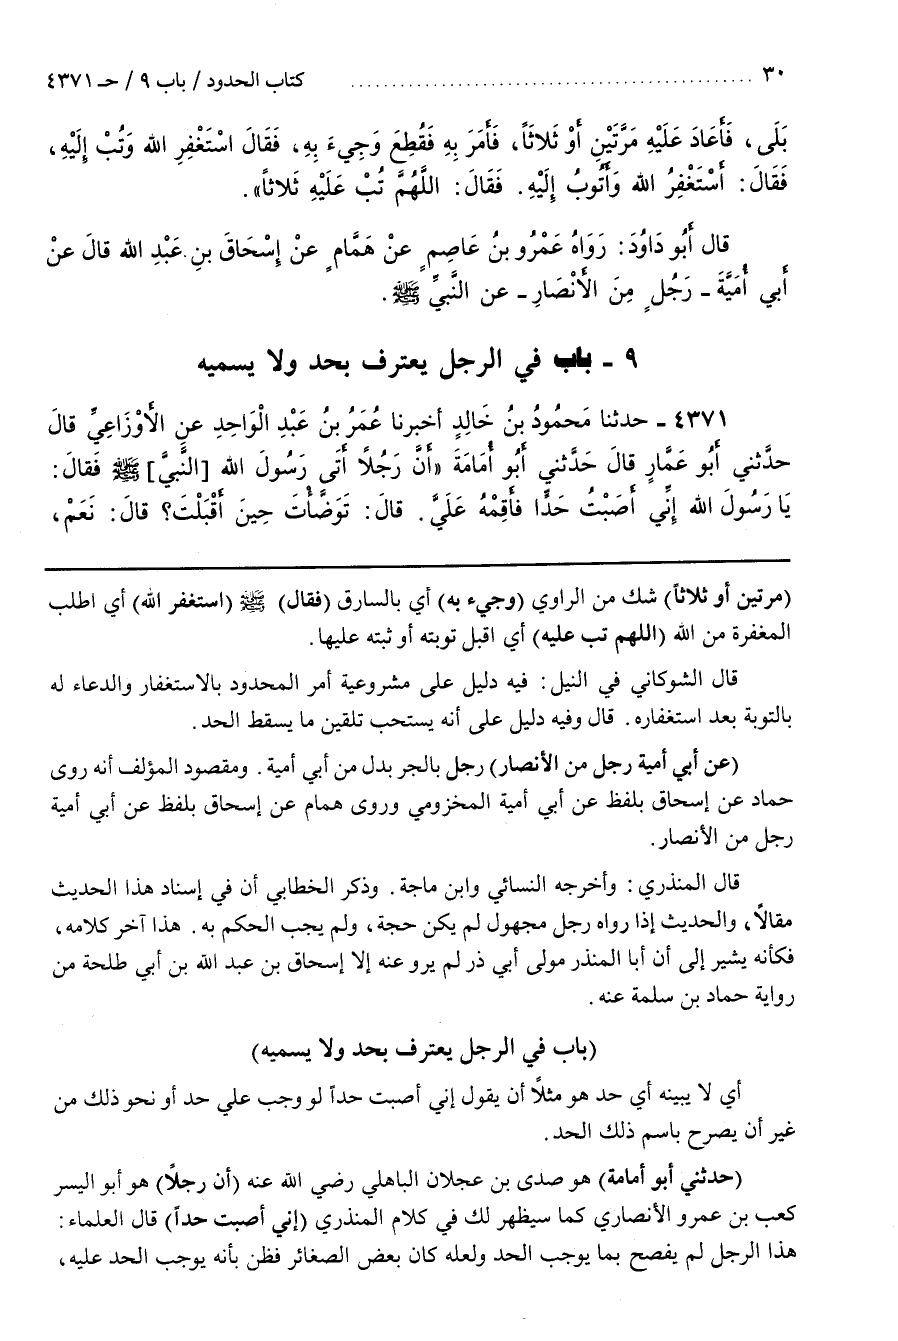 ٣٠ ........................................ كتاب الحدود / باب ٩ / حـ ٤٣٧١
بَلَى، فَأَعَادَ عَلَيْهِ مَرَّتَيْنِ أَوْ ثَلاثَاً، فَأَمَرَ بِهِ فَقُطِعَ وَجِيءَ بِهِ، فَقَالَ اسْتَغْفِرِ الله وَتُبْ إِلَيْهِ،
فَقَالَ: أَسْتَغْفِرُ الله وَأَتُوبُ إِلَيْهِ. فَقَالَ: اللَّهُمَّ تُبْ عَلَيْهِ ثَلاثاً».
قال أَبُو دَاوُدَ: رَوَاهُ عَمْرُو بنُ عَاصِمٍ عنْ هَمَّامٍ عنْ إِسْحَاقَ بنِ عَبْدِ الله قالَ عنْ
أَبي أُمَيَّةَ ـ رَجُلٍ مِنَ الأنْصَارِ ـ عن النَّبيِّ ﷺ.
٩ ـ باب في الرجل يعترف بحد ولا يسميه
٤٣٧١ ـ حدثنا مَحمُودُ بنُ خَالِدٍ أخبرنا عُمَرُ بنُ عَبْدِ الْوَاحِدِ عن الأَوْزَاعِيِّ قالَ
حدَّثني أَبُو عَمَّارٍ قالَ حَدَّثني أَبو أُمَامَةَ «أَنَّ رَجُلاً أَتَى رَسُولَ الله [النَّبيَّ] ﷺ فَقالَ:
يَا رَسُولَ الله إِنِّي أَصَبْتُ حَدًّا فَأَقِمْهُ عَلَيَّ. قالَ: تَوَضَّأْتَ حِينَ أَقْبَلْتَ؟ قالَ: نَعَمْ،
(مرتين أو ثلاثاً) شك من الراوي (وجيء به) أي بالسارق (فقال) ﷺ (استغفر الله) أي اطلب
المغفرة من الله (اللهم تب عليه) أي اقبل توبته أو ثبته عليها.
قال الشوكاني في النيل: فيه دليل على مشروعية أمر المحدود بالاستغفار والدعاء له
بالتوبة بعد استغفاره. قال وفيه دليل على أنه يستحب تلقين ما يسقط الحد.
(عن أبي أمية رجل من الأنصار) رجل بالجر بدل من أبي أمية. ومقصود المؤلف أنه روى
حماد عن إسحاق بلفظ عن أبي أمية المخزومي وروى همام عن إسحاق بلفظ عن أبي أمية
رجل من الأنصار.
قال المنذري: وأخرجه النسائي وابن ماجة. وذكر الخطابي أن في إسناد هذا الحديث
مقالاً، والحديث إذا رواه رجل مجهول لم يكن حجة، ولم يجب الحكم به. هذا آخر كلامه،
فكأنه يشير إلى أن أبا المنذر مولى أبي ذر لم يرو عنه إلا إسحاق بن عبد الله بن أبي طلحة من
رواية حماد بن سلمة عنه.
(باب في الرجل يعترف بحد ولا يسميه)
أي لا يبينه أي حد هو مثلاً أن يقول إني أصبت حداً لو وجب علي حد أو نحو ذلك من
غير أن يصرح باسم ذلك الحد.
(حدثني أبو أمامة) هو صدى بن عجلان الباهلي رضي الله عنه (أن رجلاً) هو أبو اليسر
كعب بن عمرو الأنصاري كما سيظهر لك في كلام المنذري (إني أصبت حداً) قال العلماء:
هذا الرجل لم يفصح بما يوجب الحد ولعله كان بعض الصغائر فظن بأنه يوجب الحد عليه،